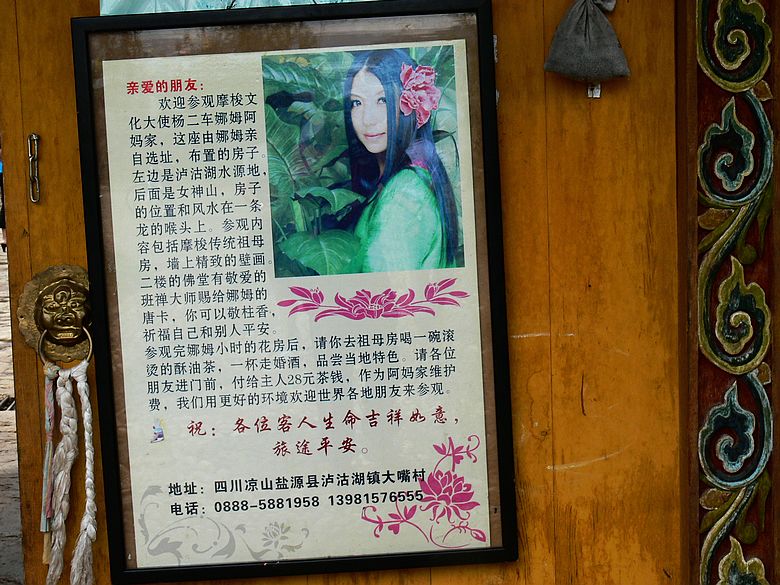 亲爱的朋友：
欢迎参观摩梭文
化大使杨二车娜姆阿
妈家，这座由娜姆亲
自选址，布置的房子。
左边是泸沽湖水源地，
后面是女神山，房子
的位置和风水在一条
龙的喉头上。参观内
容包括摩梭传统祖母
房，墙上精致的壁画。
二楼的佛堂有敬爱的
班禅大师赐给娜姆的
唐卡，你可以敬柱香，
祈福自己和别人平安。
参观完娜姆小时的花房后，请你去祖母房喝一碗滚
烫的酥油茶，一杯走婚酒，品尝当地特色。请各位
朋友进门前，付给主人28元茶钱，作为阿妈家维护
费，我们用更好的环境欢迎世界各地朋友来参观。
祝：各位客人生命吉祥如意，
旅途平安。
地址：四川凉山盐源县泸沽湖镇大嘴村
电话：0888-5881958 13981576555